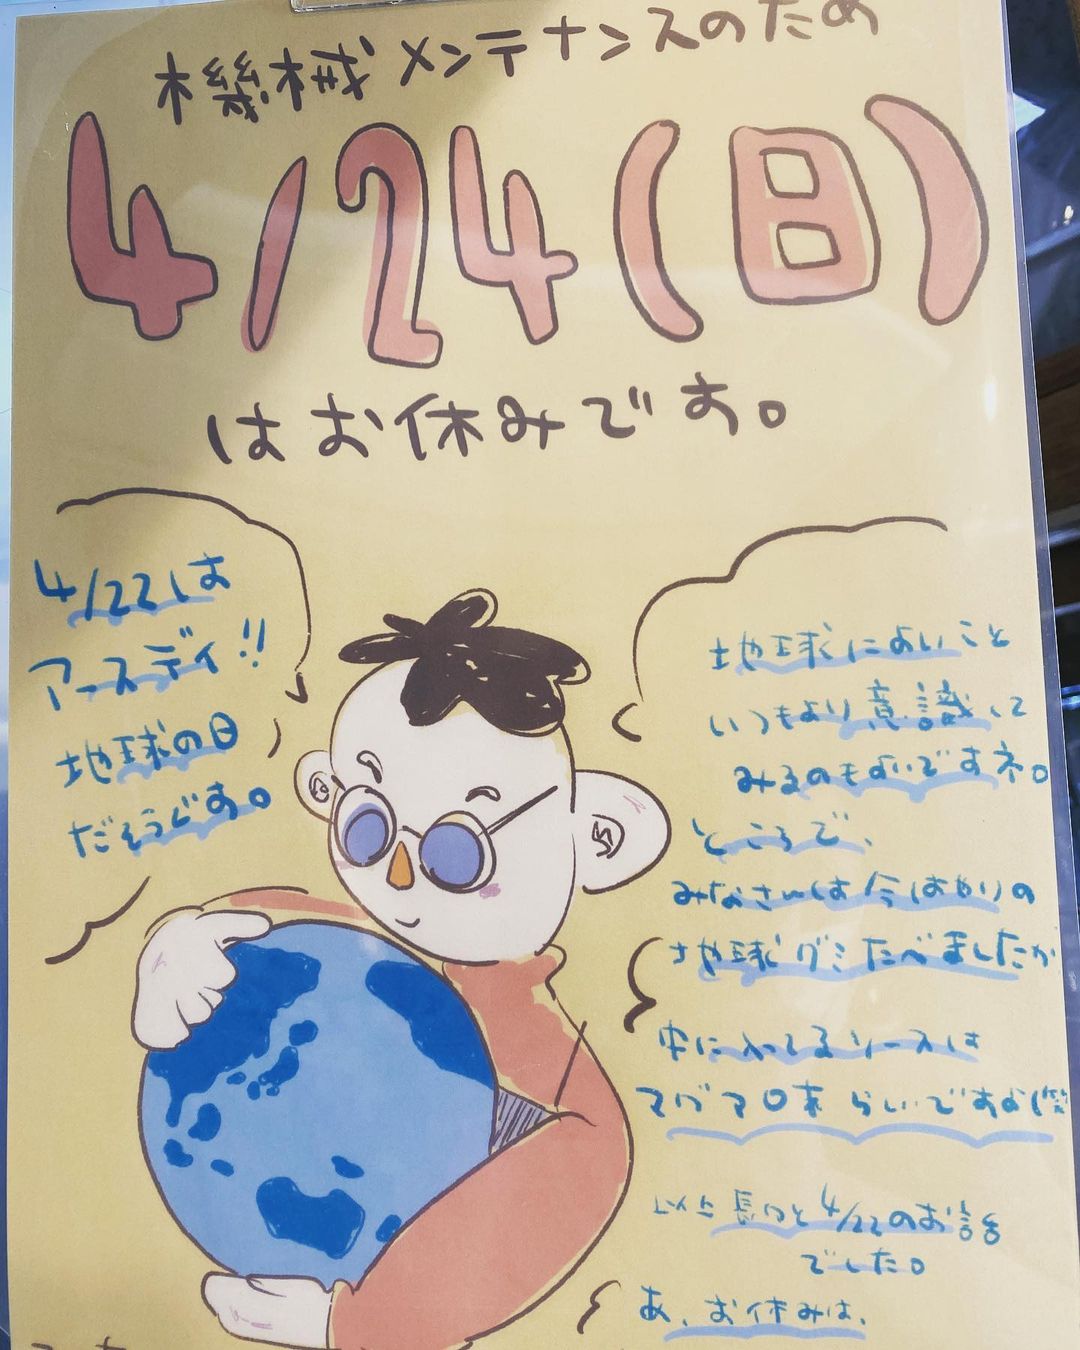 機械メンテナンスのため
4/24(日)
はお休みです。
4/22は
アースデイ!!
地球の日
だそうです。
地球によいこと
いつもより意識して
みるのもよいですネ。
ところで、
みなさんは今はやりの
地球グミたべましたか
中に入ってるソースは
マグマ味らしいですよ(笑
以上長々と4/22のお話
でした。
あ、お休みは、